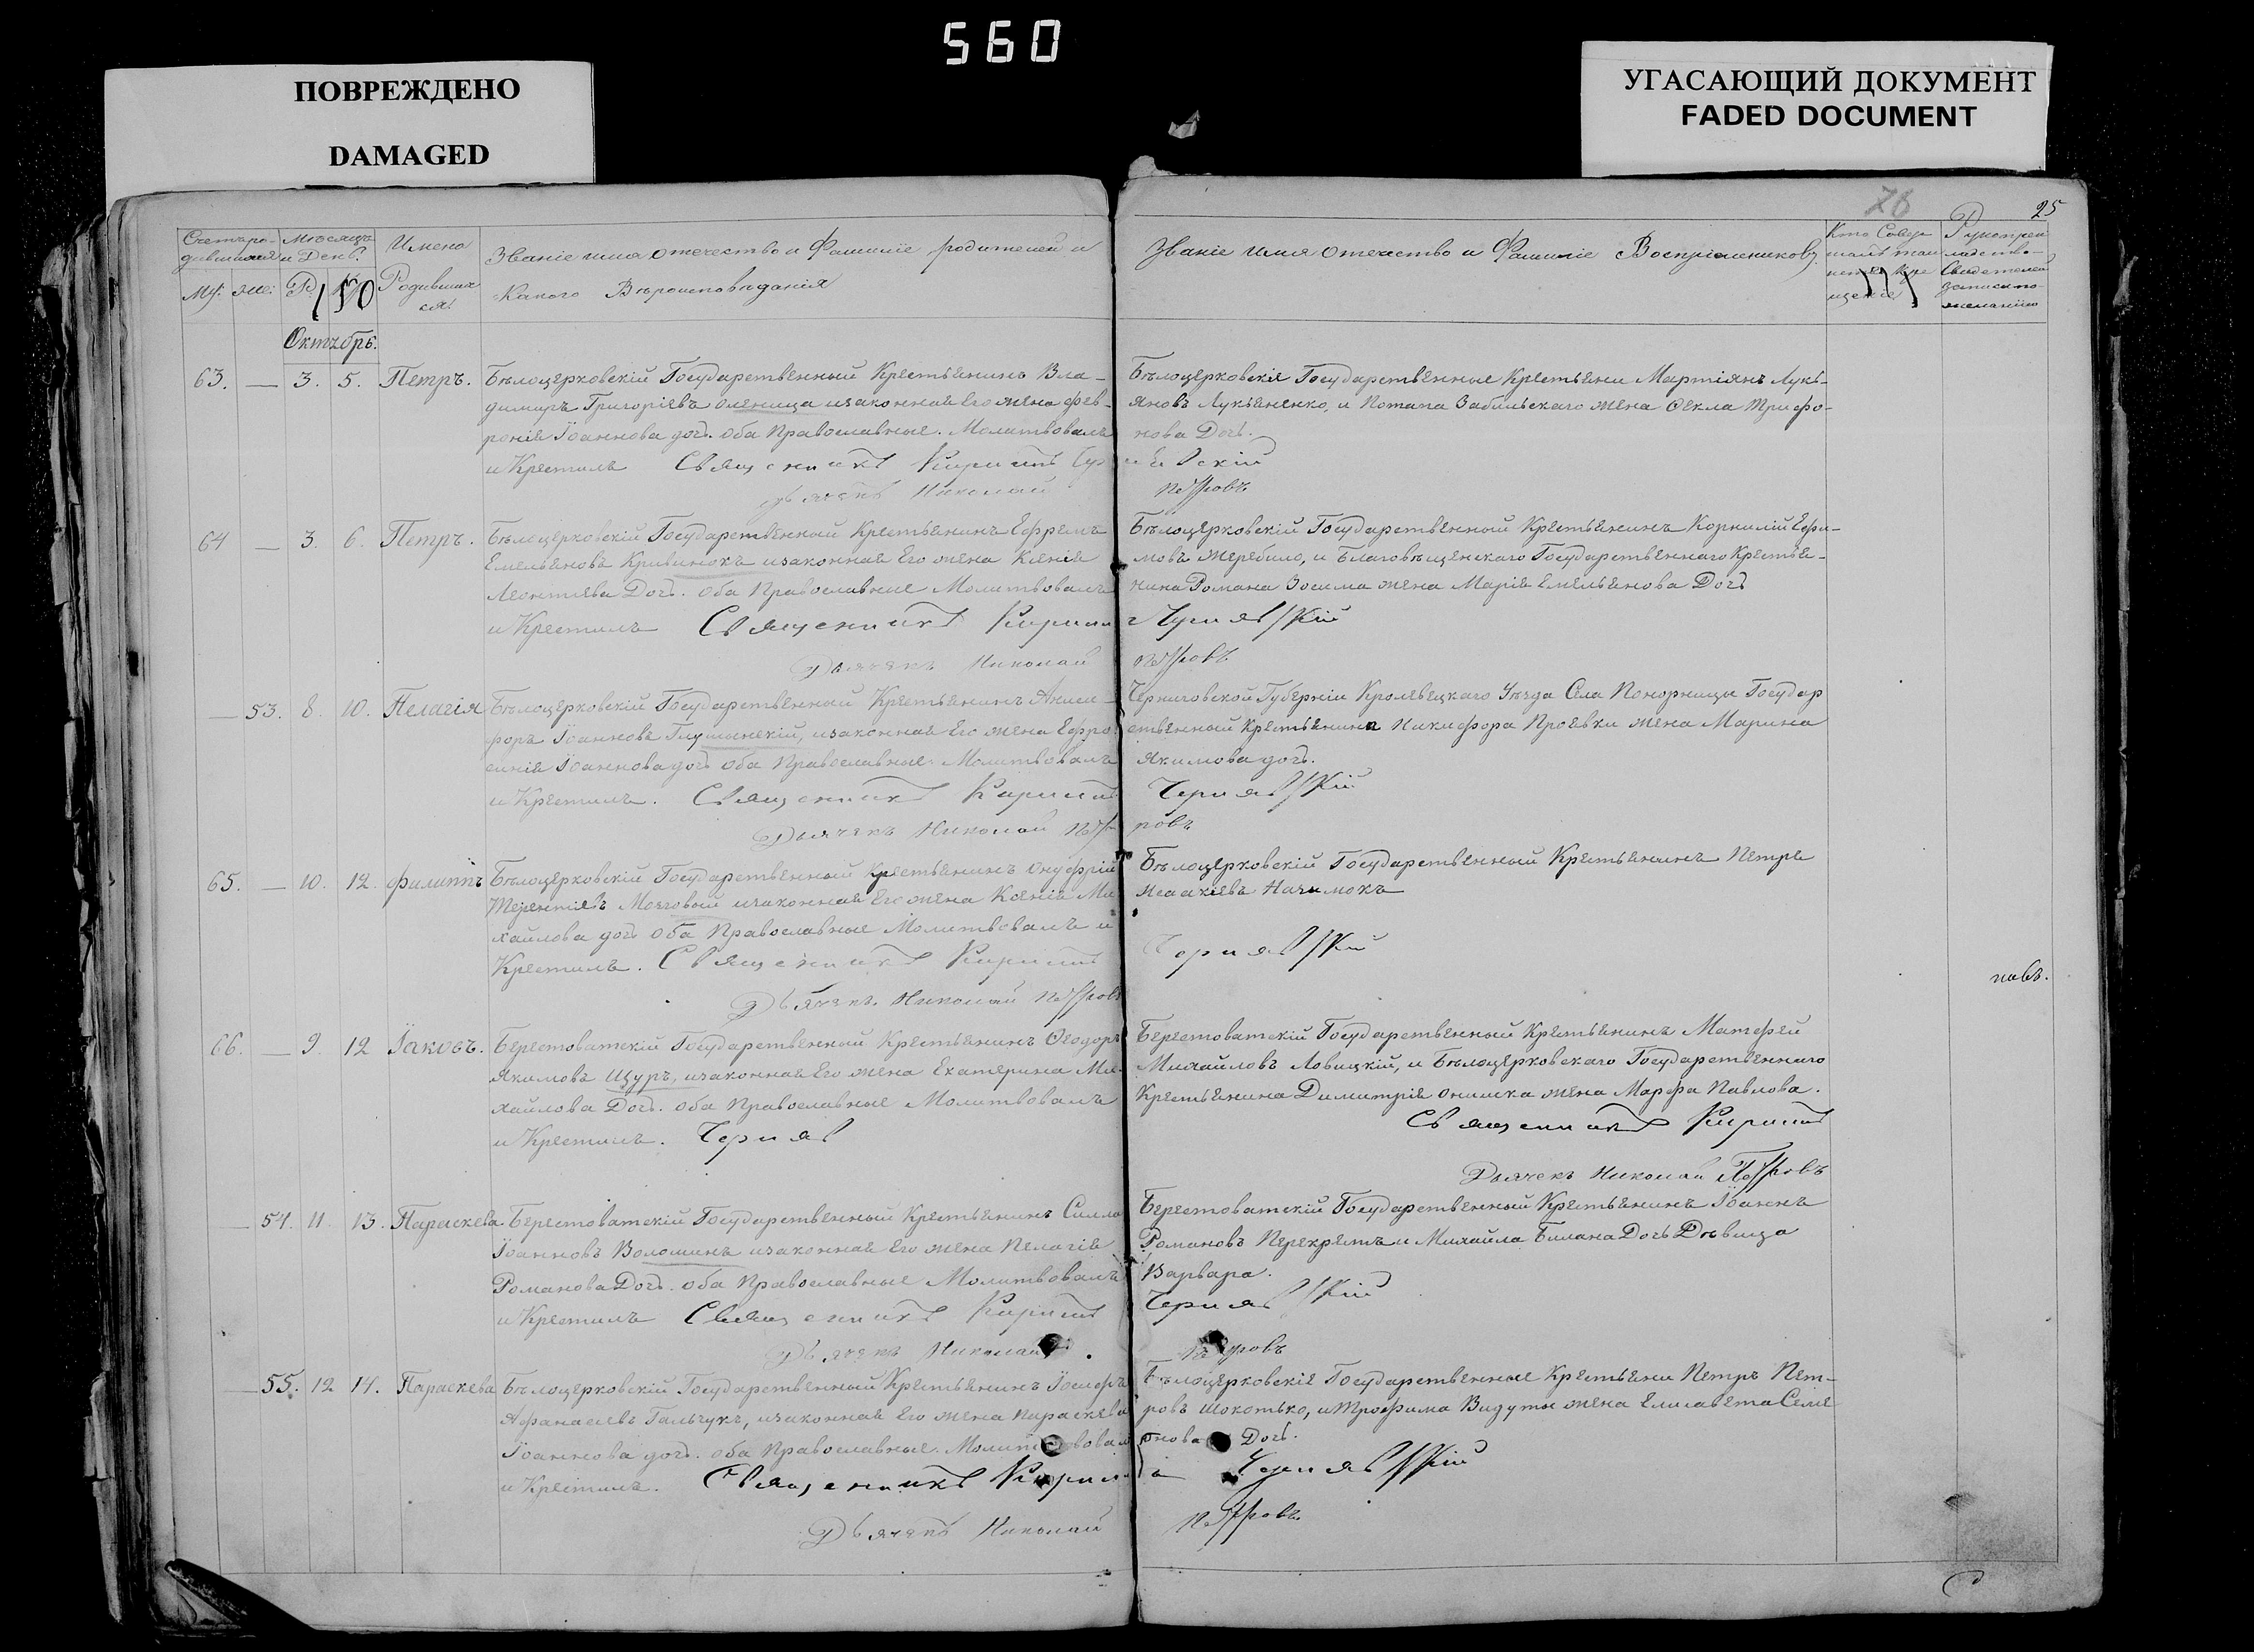 560
ПОВРЕЖДЕНО
DAMAGED
УГАСАЮЩИЙ ДОКУМЕНТ
FADED DOCUMENT
76
25
Счетъ ро-
дившихся
Мѣсяцъ
и День
Имена
Родивших
ся
Званіе имя отечество и Фамиліе родителей и
Какого Вѣроисповѣданія
Му. же. Р. К
Званіе имя отечество и Фамиліе Воспріемниковъ
Кто Совер
шалъ таи
щеніе
Рукопри
Свидетелей
записи по
желанію
Октябрь.
63. — 3. 5. Петръ. Бѣлоцерковскій Государственный Крестьянинъ Вла-
димиръ Григоріевъ Оленица изаконная Его жена Фев-
ронія Іоаннова дочь. оба Православные. Молитвовалъ
и Крестилъ Священникъ Кирилъ
Дьячекъ Николай
Бѣлоцерковскіе Государственные Крестьяни Мартіянъ Лукь-
яновъ Лукьяненко, и Потапа Забильскаго жена Ѳекла Трифо-
нова Дочь.
Петровъ
64 — 3. 6. Петръ. Бѣлоцерковскій Государственный Крестьянинъ Ефремъ
Емельяновъ Кривинокъ изаконная Его жена Ксенія
Леонтіева Дочь. оба Православные Молитвовалъ
и Крестилъ Священникъ Кирилъ
Дьячекъ Николай
Бѣлоцерковскій Государственный Крестьянинъ Корнилій Ефи-
мовъ Жеребило, и Благовѣщенскаго Государственнаго Крестья-
нина Романа Зосима жена Марія Емельянова Дочь
Чернявскій
Петровъ
— 53. 8. 10. Пелагія Бѣлоцерковскій Государственный Крестьянинъ Аники-
форъ Іоанновъ Глушинскій, изаконная Его жена Ефро
синія Іоаннова дочь оба Православные Молитвовалъ
и Крестилъ. Священникъ Кирилъ
Дьячекъ Николай Пет
Черниговской Губерніи Кролевецкаго Уѣзда Села Понорницы Государ
ственный Крестьянина Никифора Проевки жена Марина
Якимова дочь.
Чернявскій
ровъ
65. — 10. 12. Филиппъ Бѣлоцерковскій Государственный Крестьянинъ Онуфрій
Терентіевъ Мозговый изаконная Его жена Ксенія Ми
хайлова дочь оба Православные Молитвовалъ и
Крестилъ. Священникъ Кирилъ
Дьячекъ Николай Петровъ
Бѣлоцерковскій Государственный Крестьянинъ Петръ
Исаакіевъ Начинокъ
Чернявскій
повъ.
66. — 9. 12 Іаковъ. Берестоватскій Государственный Крестьянинъ Ѳеодоръ
Якимовъ Щуръ, изаконная Его жена Екатерина Ми-
хайлова Дочь. оба Православные Молитвовалъ
и Крестилъ. Черняв
Берестоватскій Государственный Крестьянинъ Матфей
Михайловъ Ловицкій, и Бѣлоцерковскаго Государственнаго
Крестьянина Димитрія Онишка жена Марфа Павлова.
Священникъ Кирилъ
Дьячекъ Николай Петровъ
— 54. 11. 13. Параскева Берестоватскій Государственный Крестьянинъ Сила
Іоанновъ Волошинъ изаконная Его жена Пелагія
Романова Дочь. оба Православные Молитвовалъ
и Крестилъ Священникъ Кирилъ
Дьячекъ Николай
Берестоватскій Государственный Крестьянинъ Іоаннъ
Романовъ Перекрестъ и Михайла Билана Дочь Дѣвица
Варвара.
Чернявскій
Петровъ
— 55. 12 14. Параскева Бѣлоцерковскій Государственный Крестьянинъ Іосифъ
Афанасіевъ Гальчукъ, изаконная Его жена Параскева
Іоаннова дочь. оба Православные. Молитвовал
и Крестилъ. Священникъ Кирил
Дьячекъ Николай
Бѣлоцерковскіе Государственные Крестьяни Петръ Пет-
ровъ Шокотько, и Трофима Видуты жена Елисавета Семе
онова Дочь.
Чернявскій
Петровъ